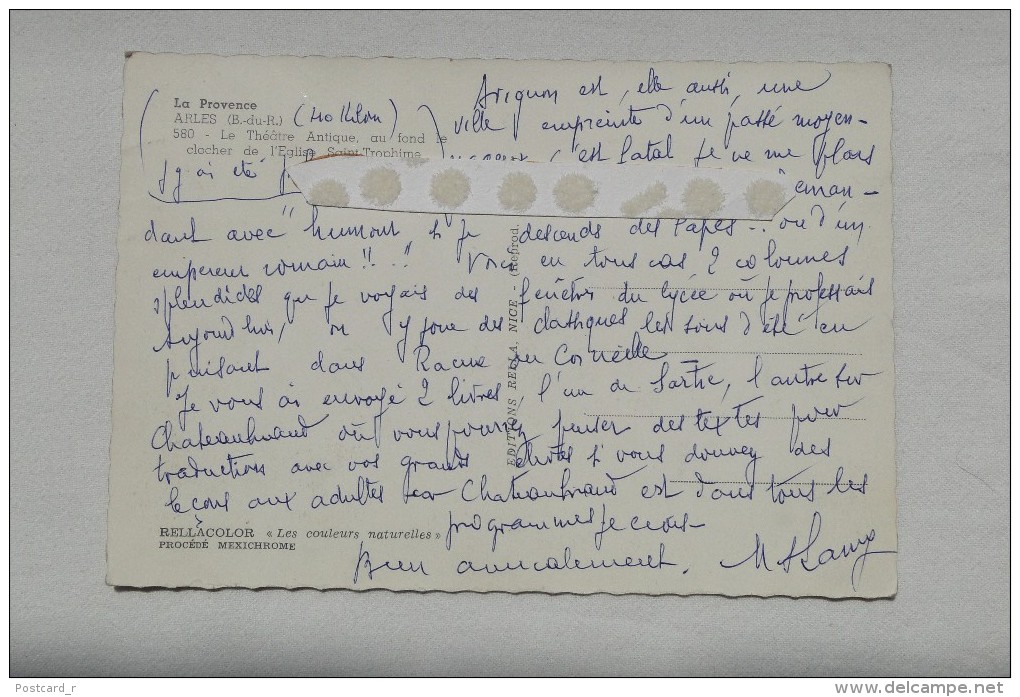 La Provence
ARLES (B.-du-R.) (40 Kilom)
580 - Le Théâtre Antique, au fond le
clocher de l'Eglise Saint-Trophime
J'y ai été
Avignon est, elle aussi, une
ville empreinte d'un passé moyen-
c'est fatal je ne me plais
eman-
dant avec "humour" si je descends des Papes... ou d'un
empereur romain!!..! Voici en tous cas 2 colonnes
splendides que je voyais des fenêtres du lycée où je professais
Aujourd'hui, on y joue des classiques les soirs d'été en
puisant dans Racine ou Corneille
Je vous ai envoyé 2 livres, l'un de Sartre, l'autre sur
Chateaubriand où vous pourrez puiser des textes pour
traductions avec vos grands élèves si vous donnez des
leçons aux adultes car Chateaubriand est dans tous les
programmes je crois-
Bien amicalement.
EDITIONS RELLA, NICE - (Reprod.
RELLACOLOR « Les couleurs naturelles »
PROCÉDÉ MEXICHROME
Postcard_r
www.delcampe.net